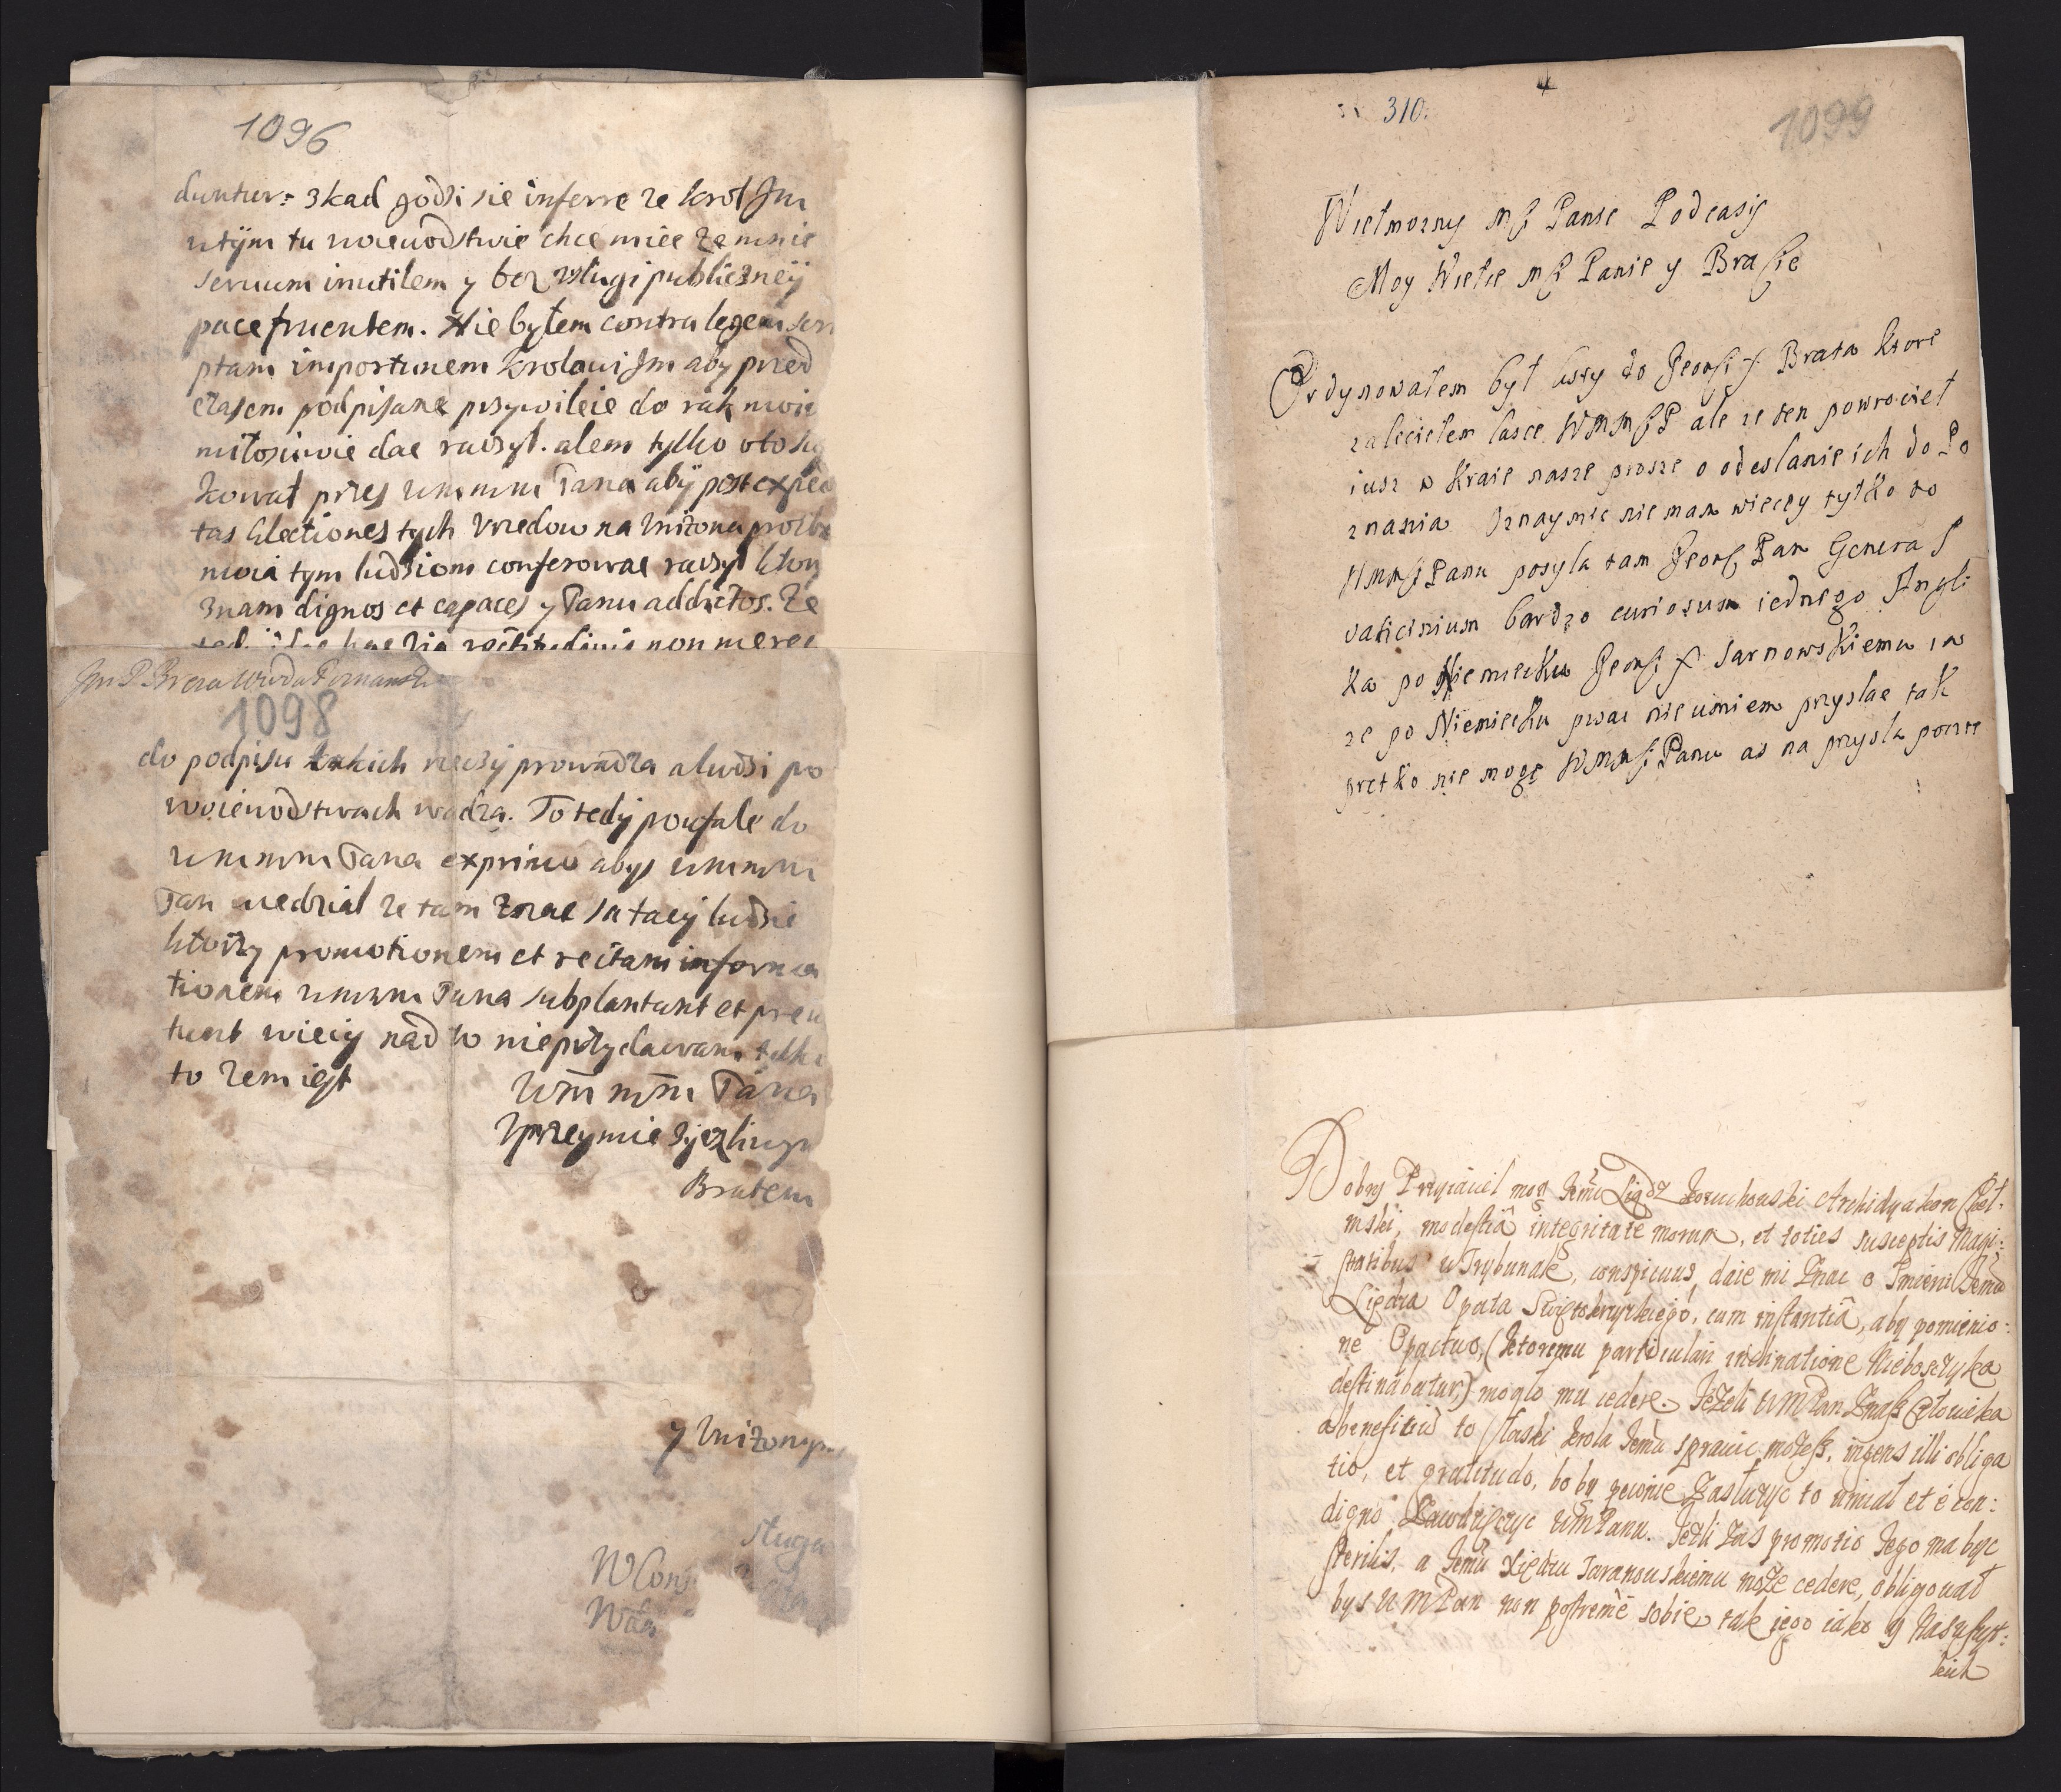 1096
duntur: zkad godzi sie inferre ze Krol Jm
wtÿm tu woiewodstwie chce miec zemnie
seruum inutilem y bez vsługi publicznëÿ
pace fruentem. Nie byłem contra legem scri
ptam importunem Krolowi Jm aby przed
czasem podpisane przywileie do rąk moic
miłosciwie dac raczył. alem tylko oto su
kował przez wm mm Pana abÿ post expedi
tas Electiones tych Vrzedow na Vniżoną proźbę
moią tym ludziom conferowac raczył ktory
znam dignos et capaces y Panu addictos. Ze
non mere
Jm P. Breza Wwda Poznanski
1098
do podpisu takich rzeczÿ prowadzą a ludzi po
woiewodstwach wadzą. To tedÿ poufale do
wm mm Pana exprimo abÿs wm mm
Pan wiedział ze tam znac są tacÿ ludzie
ktorzy promotionem et rectam informa
tionem wm mm Pana subplantant et preu
tunt wiecÿ nad to nieprzydawam tylko
to zem iest
Wm mm Pana
Vprzeymie zyczliwy
Bratem
y Vniżonym
sługą
310.
1099
Wielmozny Mſi Panie Podcaszy
Moy Wielce Mſi Panie y Bracie
Ordynowałem był listy do Jeomſi X Brata ktore
zaleciełem lasce WMMſiP ale ze ten powrociel
iusz w kraie nasze prosze o odeslanie ich do Po
znania Oznaymic nie mam wiecey tylko to
WMMſiPanu posyla tam Jeomſ Pan General
vaticinium bardzo curiosum iednego Angli
ka po Niemiecku Jeomſi X Tarnowskiemu ia
ze po Niemiecku pisac nie umiem przyslac tak
pretko nie mogę WMMſiPanu as na przysla poczte
Dobry Przyiaciel moy Jemć Xiądz Kozuchowski Archidyakon Cheł:
mski, modestiâ integritate morum, et toties susceptis Magi:
stratibus w Trybunale, conspicuus, daie mi znac o smierci Jemci
Xiędza Opata Swiętokrzyskiego, cum instantiâ, aby pomienio:
ne Opactwo, (ktoremu particulari inclinatione Nieboszczyka
destinabatur,) mogło mu cedere. Jeżeli WMPan znasz Człowieka
a beneficiũ to z łaski Krola Jemci sprawic możesz, ingens illi obliga
tio, et gratitudo, bo by pewnie zasłużyc to umiał et è con:
digno zawdzięczyc WMPanu. Jeżli zas promotio Jego ma byc
sterilis, a Jemci Xiędzu Taranowskiemu może cedere, obligował
bys WMPan non postremè sobie tak jego iako y Nas wszyst:
kich